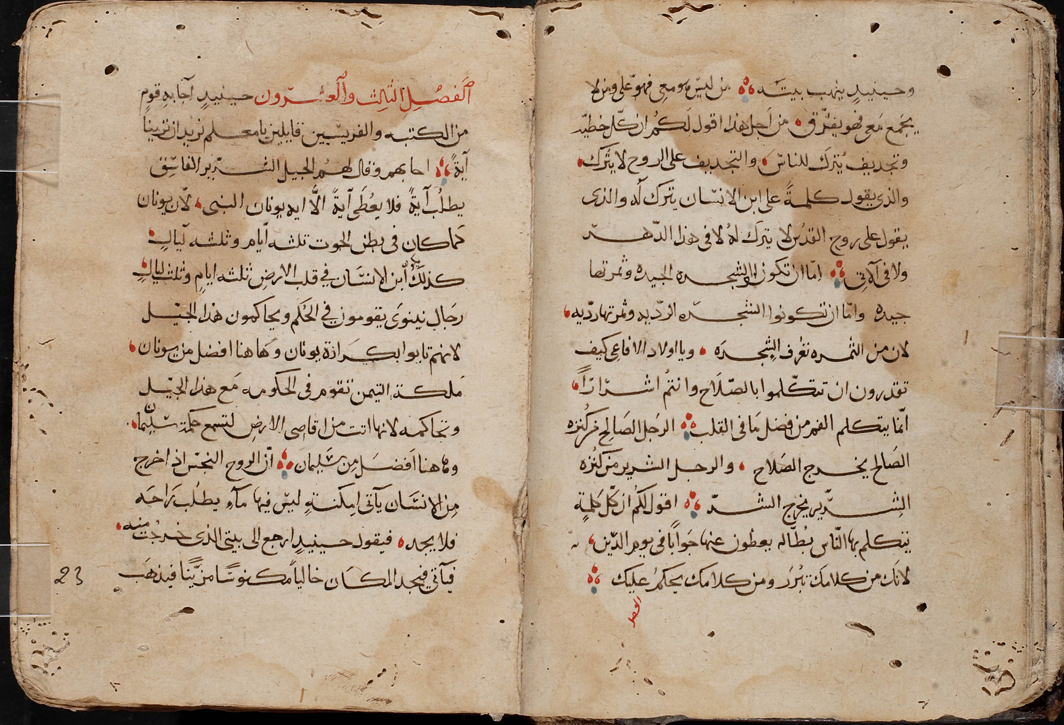 وحينيدٍ ينهب بيته من ليس هو معي فهو علي ومن لا
يجمع معي فهو يفرق من اجل هذا اقول لكم ان كل خطيه
وتجديف يترك للناس والتجديف على الروح لا يترك
والذي يقول كلمةً على ابن الانسان يترك له والذي
يقول على روح القدس لا يترك له لا في هذا الدهر
ولا في الاتي اما ان تكون الشجره الجيده وثمرتها
جيده واما ان تكونوا الشجره الرديه وثمرتها رديه
لان من الثمره تعرف الشجره ويا اولاد الافاعي كيف
تقدرون ان تتكلموا بالصلاح وانتم اشراراً
انما يتكلم الفم من فضل ما في القلب الرجل الصالح من كنزه
الصالح يخرج الصلاح والرجل الشرير من كنزه
الشرير يخرج الشر اقول لكم ان كل كلمةٍ
يتكلم بها الناس بطاله يعطون عنها جواباً في يوم الدين
لانك من كلامك تبرر ومن كلامك يحكم عليك
الفصل الثالث والعشرون حينيدٍ اجابه قوم
من الكتبه والفريسيين قايلين يا معلم نريد ان ترينا
آيةً اجابهم وقال لهم الجيل الشرير الفاسق
يطلب آيةً فلا يعطى آيةً الا ايه يونان النبي لان يونان
كما كان في بطن الحوت ثلثه أيام وثلثه ليالٍ
كذلك ابن الانسان في قلب الارض ثلثه ايام وثلث ليالٍ
رجال نينوى يقومون في الحكم ويحاكمون هذا الجيل
لانهم تابوا بكرازة يونان وهاهنا افضل من يونان
ملكة التيمن تقوم في الحكومه مع هذا الجيل
وتحاكمه لانها اتت من اقاصي الارض لتسمع حكمة سليمان
وهاهنا افضل من سليمان ان الروح النجس اذا خرج
من الانسان يأتي امكنةٍ ليس فيها مآء يطلب راحه
فلا يجد فيقول حينيدٍ ارجع الى بيتي الذي خرجت منه
فيأتي فيجد المكان خالياً مكنوسًا مزينًا فيذهب
23